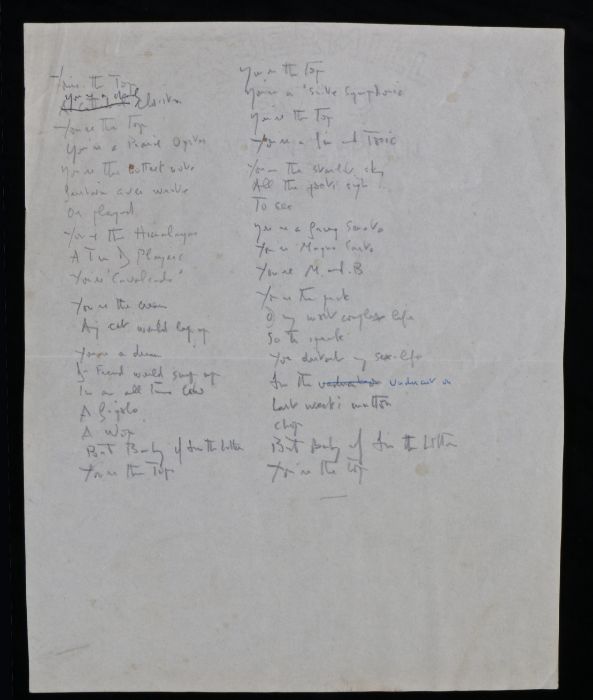 You're the Top
You're a
You're the Top
You're a Prairie Oyster
You're the hottest note
Britain ever wrote
Or played,
You're the Himalayas
A Tin of Players
You're "Cavalcade"
You're the cream
Any cat would lap up
You're a dream
Freud would snap up
In an all time low
A gigolo
A Wop
But Baby if I'm the bottom
You're the Top
You're the Top
You're a "Suite Symphonic"
You're the Top
You're a Gin and Tonic
You're the sky
All the poets sigh
To see
You're a
You're Magna Carta
You're M. and B
You're the
Of my most complex life
So to speak
You disturb my sex-life
I'm the
Last week's mutton
chop
But Baby if I'm the bottom
You're the top